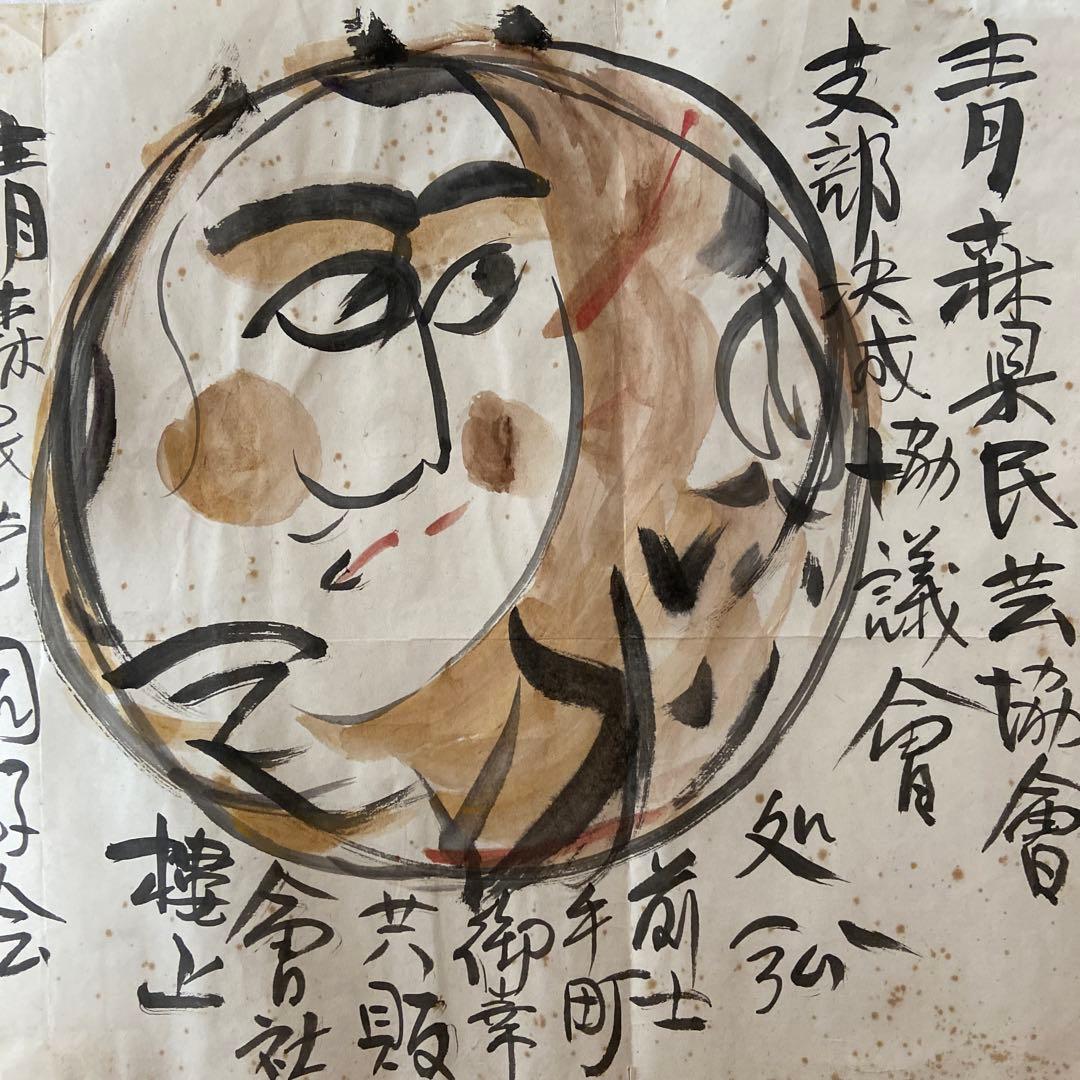 青森県民芸協會
支部决成協議會
処 弘
前士
手町
御幸
共販
會社
樓上
青森
同好会